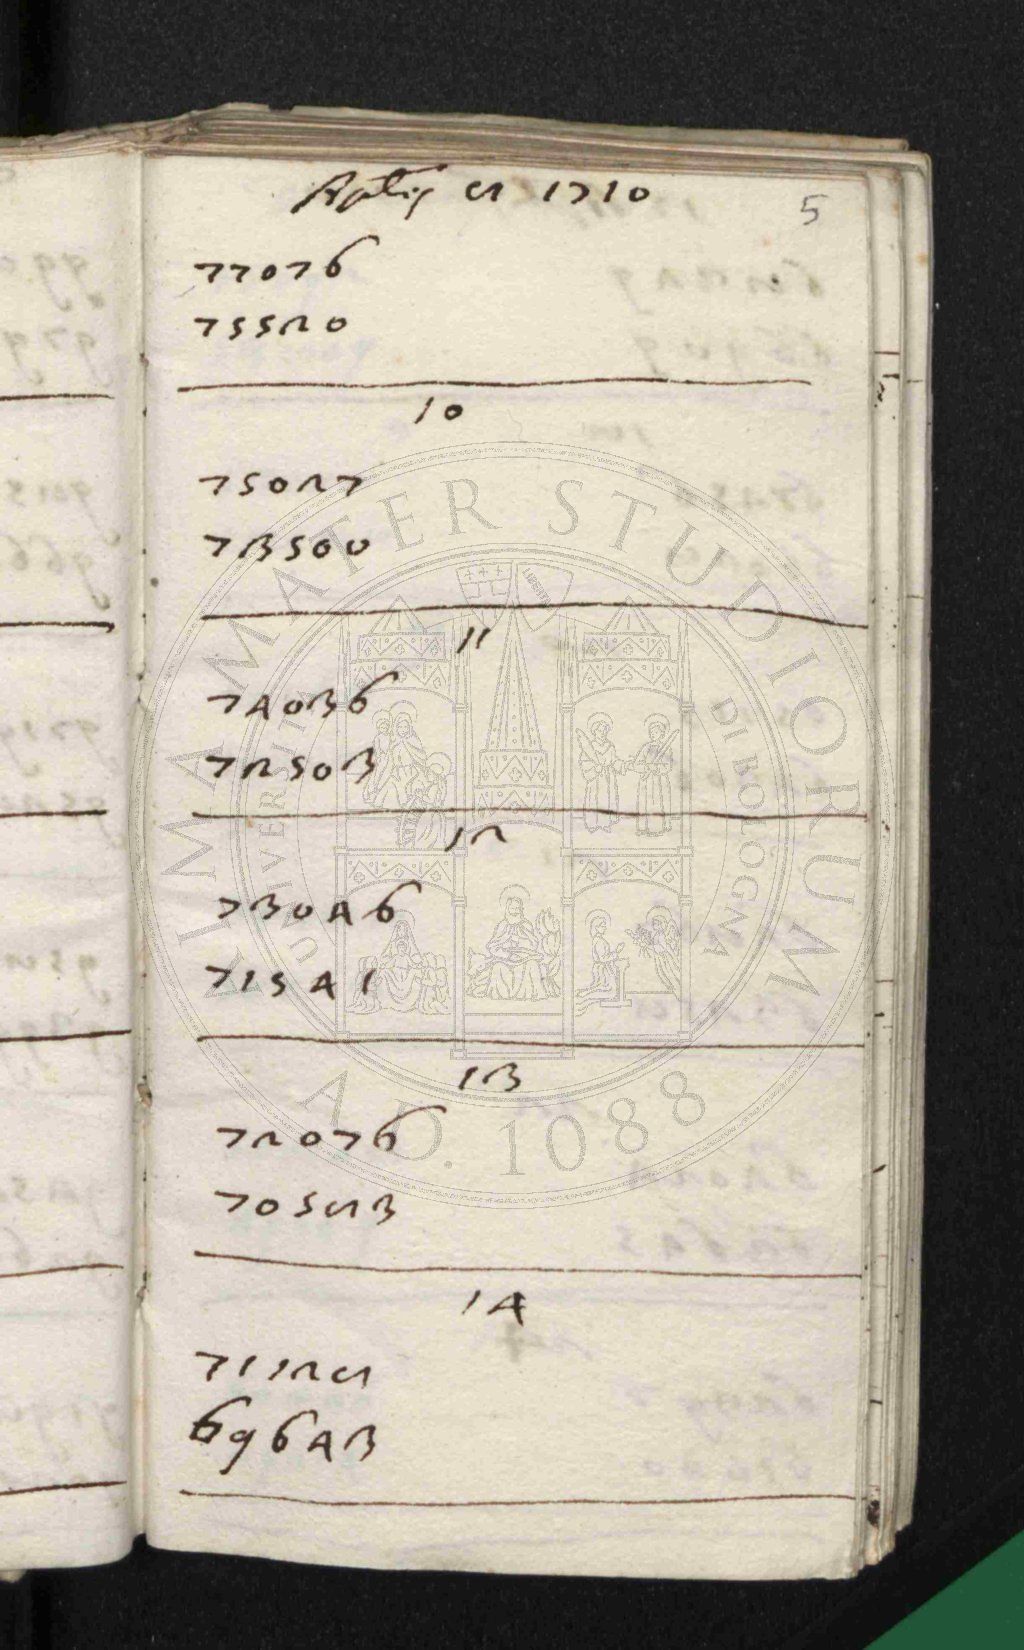 Aplis 8 1710
5
77076
75520
10
75027
73500
11
74036
72503
12
73046
71541
13
72076
70583
14
71128
69643
ALMA MATER STUDIORUM
UNIVERSITÀ DI BOLOGNA
A.D. 1088